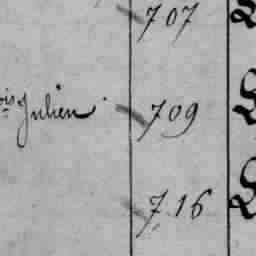 707
ois Julien 709
716